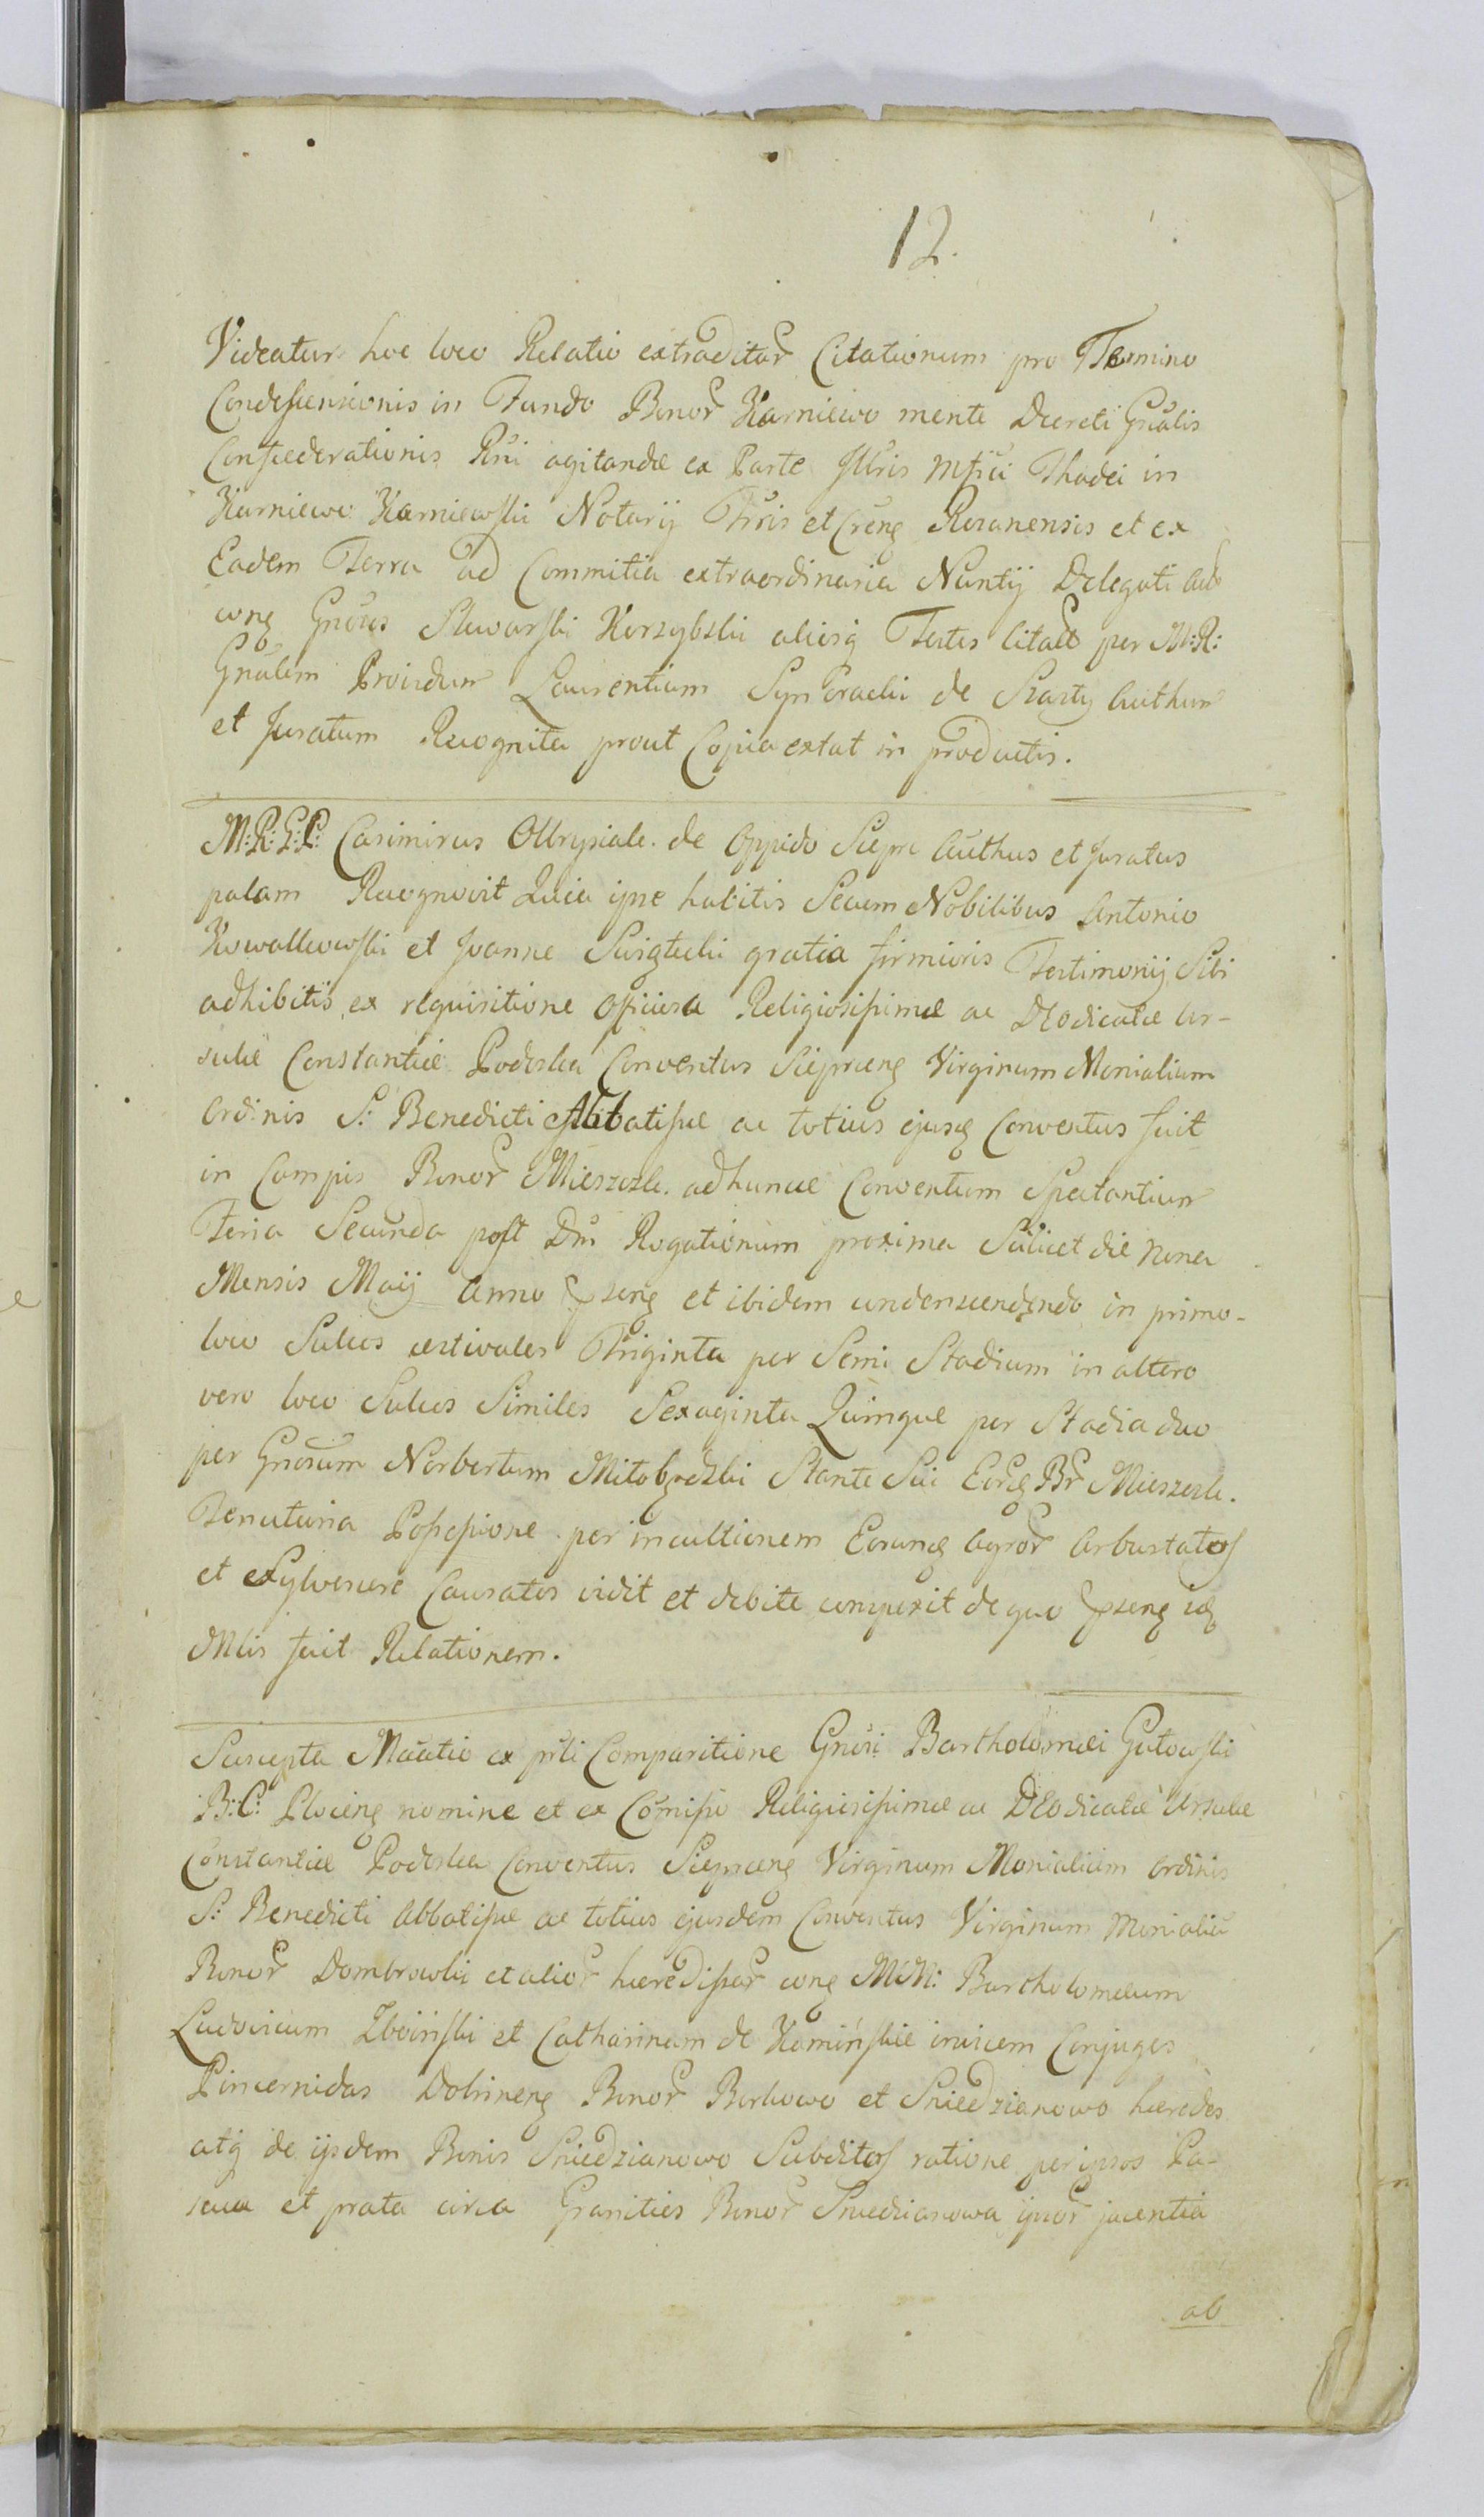 12.
Videatur hoc loco Relatio extraditar Citationum pro Termino
Condescensionis in Fundo Bonor Karniewo mente Decreti Gnalis
Confoederationis Rni agitandæ ex Parte Illris Mfici Thadei in
Karniewo Karniewski Notarij Trris et Creng Rozanensis et ex
Eadem Terra ad Commitia extraordinaria Nuntij Delegati
cong Gnosus Kurzybski aliosq Testes Citatt per M:R:
Gnalem Providum Laurentium de Authum
et Juratum Recognita prout Copia extat in productis.
M:R:G:P: Casimirus de Oppido Siepre Authus et Juratus
palam Recognovit Quia ipse habitis Secum Nobilibus Antonio
Kowallewski et Joanne gratia firmioris Testimonij Sibi
adhibitis, ex requisitione officiosa Religiosissimæ ac DEodicatæ Ur-
sulæ Constantiæ Podoska Conventus Sieprceng Virginum Monialium
Ordinis S: Benedicti Abbatissæ ac totius ejusq Conventus fuit
in Campis Bonor Mieszczk. ad huncce Conventum Spectantium
Feria Secunda post Dm Rogationum proxima Scilicet die nona
Mensis Maij Anno pzeng et ibidem condenscendendo in primo-
loco Sulcos æstivales Triginta per Semi Stadium in altero
vero loco Sulcos Similes Sexaginta Quinque per Stadia duo
per Gnosum Norbertum Mitobędzki Stante Sui Eorq Br Mieszczk.
Tenutaria Possessione per incultionem Eorunq Agror Arbustatos
et exsylvescere Causatos vidit et debite conspexit de quo pzeng iq
Mlis fecit Relationem.
Suscepta Mnatio ex prli Comparitione Gnosi Bartholomæi Gutowski
B:C: Ploceng nomine et ex Comisso Religiosissimæ ac DEodicatæ Ursulæ
Constantiæ Podoska Conventus Sieprceng Virginum Monialium Ordinis
S: Benedicti Abbatissæ ac totius ejusdem Conventus Virginum Monialiu
Bonor Dombrowki et alior hæredissar cong MM: Bartholomæum
Ludovicum Zboiński et Catharinam de Kamińskie invicem Conjuges
Pincernidas Dobrineng Bonor Borkowo et Sniedzianowo hæredes
atq de ijsdem Bonis Sniedzianowo Subditos ratione per ipsos Pa-
scua et prata circa Granities Bonor Sniedzianowa ipsor jacentia
ab